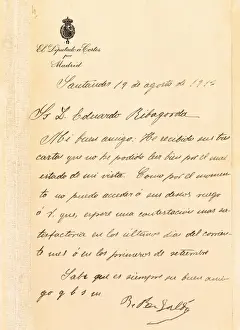 El Diputado á Cortes
por
Madrid
Santander 19 de agosto de 191
Sr D. Eduardo Ribagorda
Mi buen amigo: He recibido sus tres
cartas que no he podido leer bien por el mal
estado de mi vista. Como por el momento
no puedo acceder á sus deseos ruego
á V. que, espere una contestación mas sa-
tisfactoria en los últimos dias del corrien-
te mes ó en los primeros de setiembre
Sabe que es siempre su buen ami-
go q b s m
B. Pérez Galdós